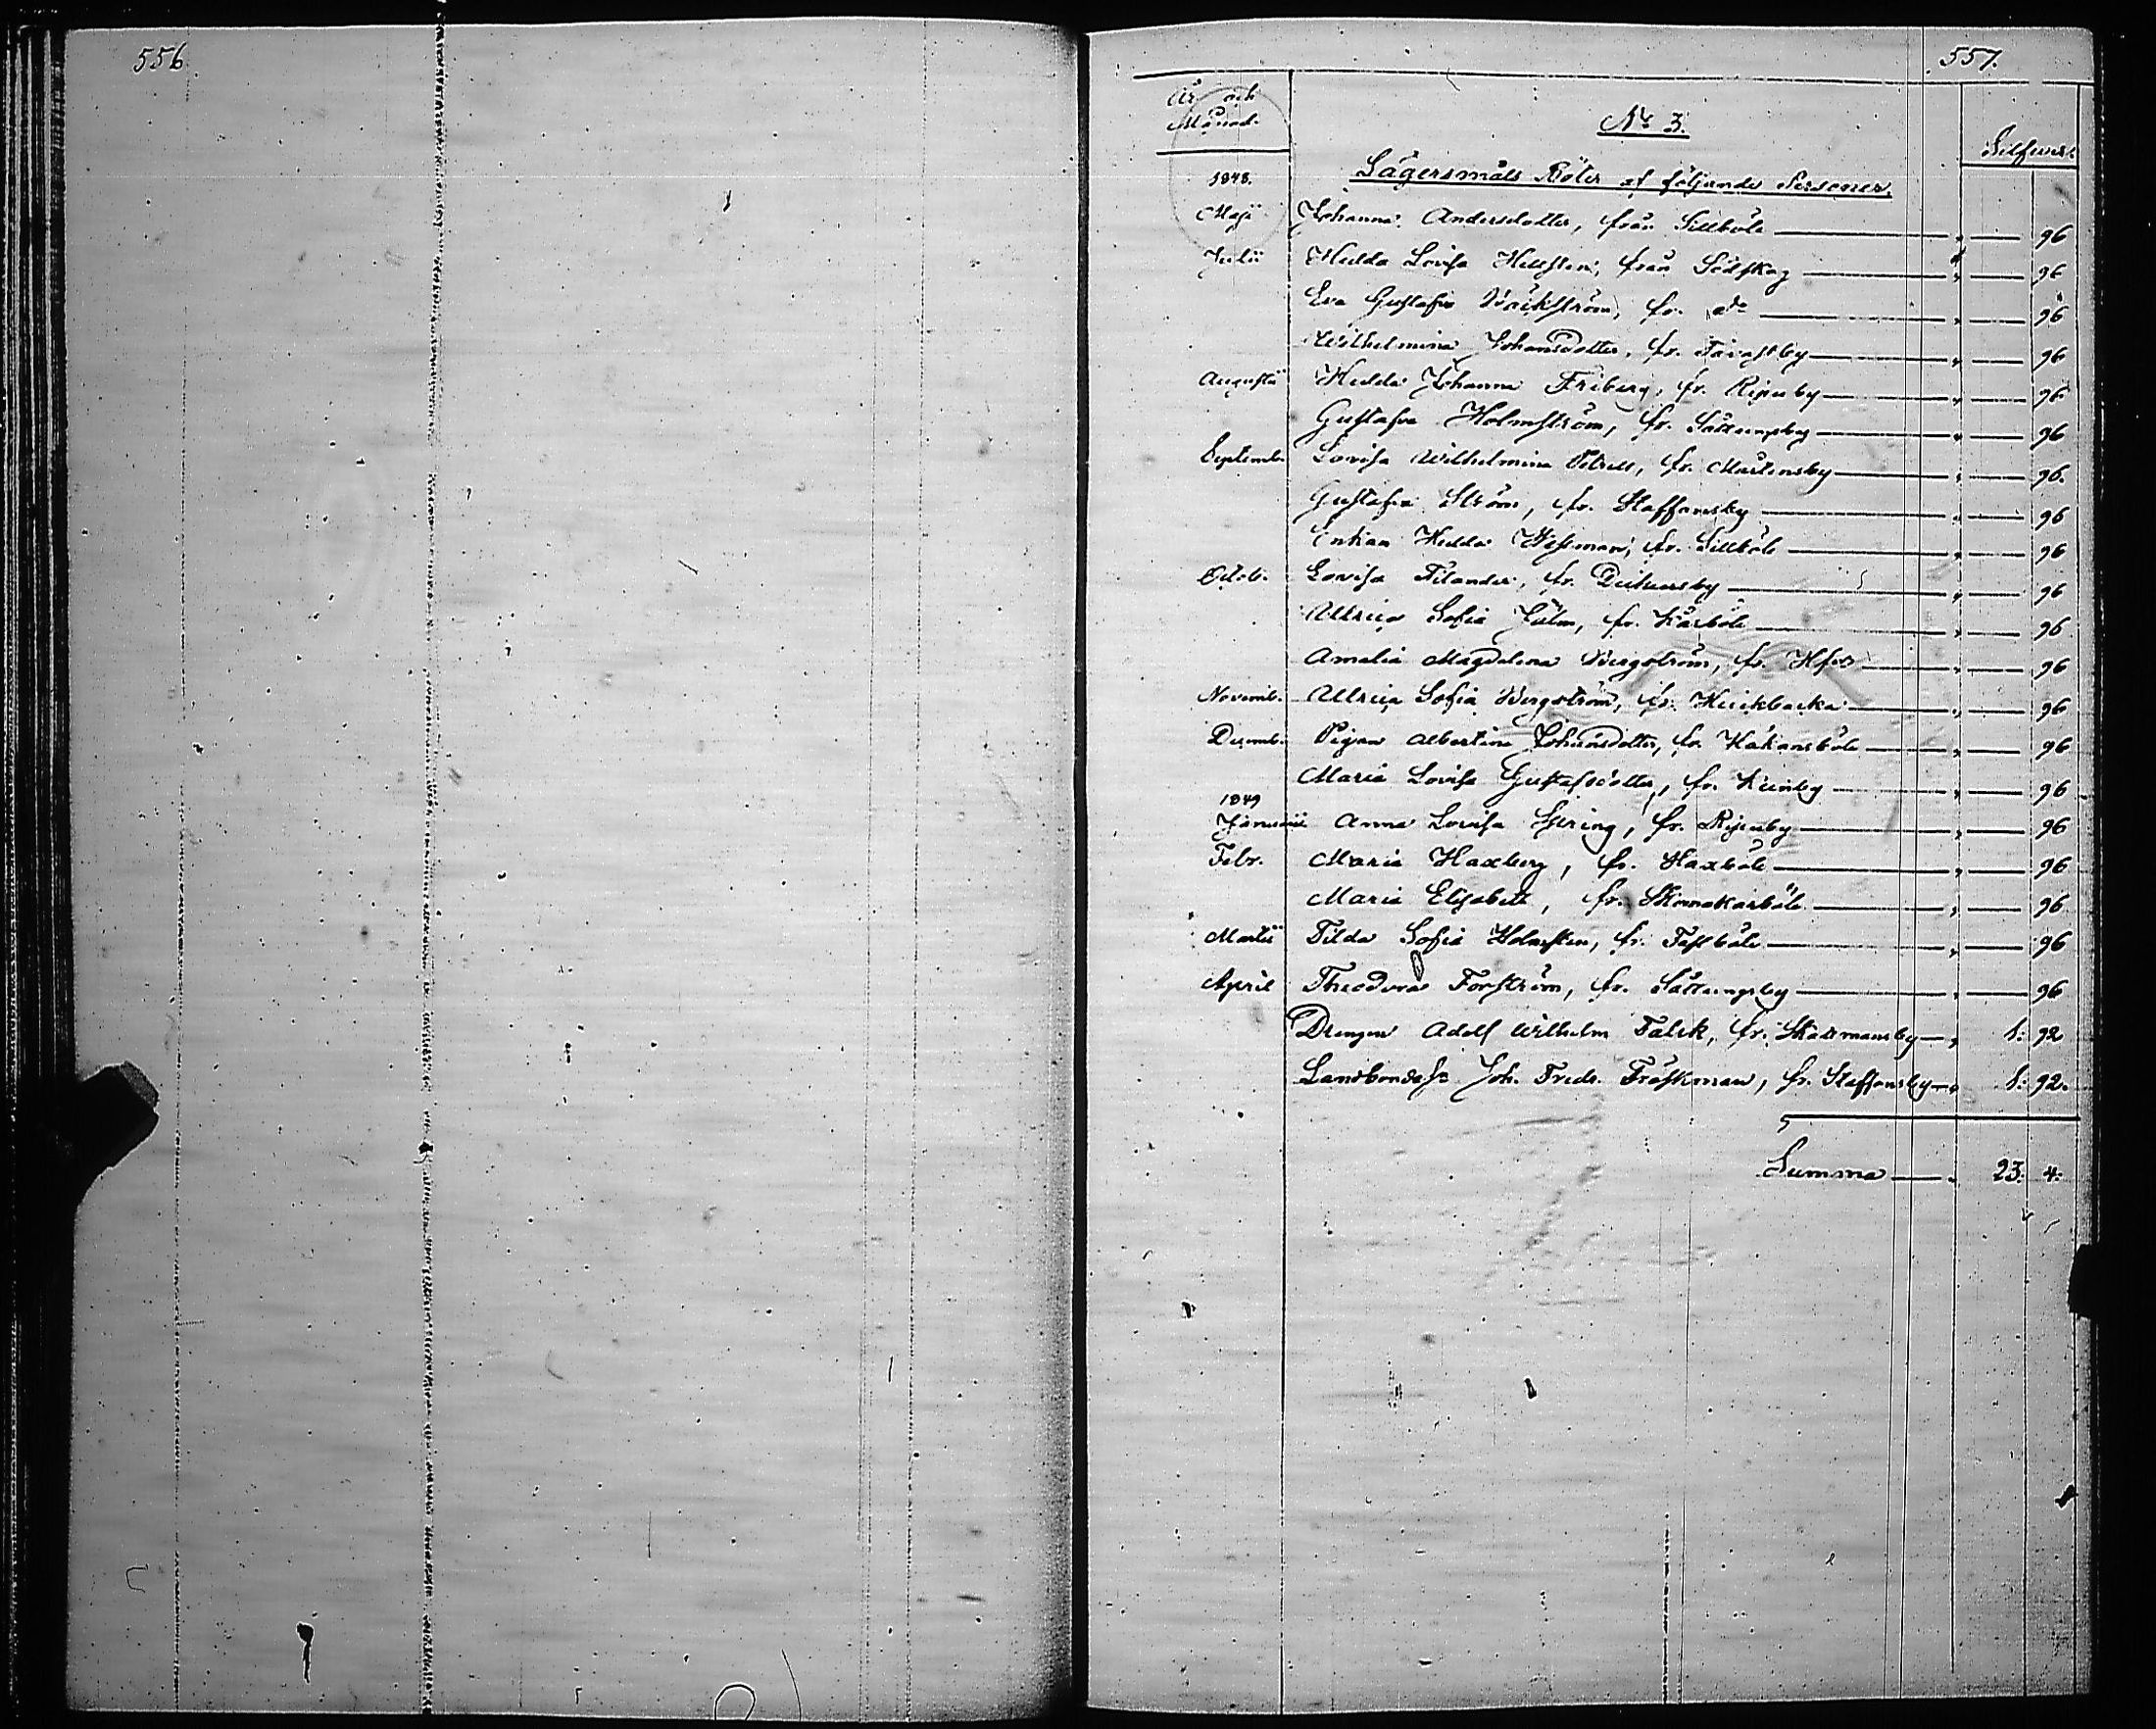 556
557.
År och
Månad.
No 3.
Silfver
1848.
Lägersmåls Böter af följande Personer
Maji Johanna Andersdotter, från Sillböle " 96
Julii Hedda Lovisa Hellsten, från Södskog " 96
Eva Gustafva Bäckström, fr. do " 96
Wilhelmina Johansdotter, fr. Tavastby " 96
Augusti Hedda Johanna Friberg, fr. Ripuby " 96
Gustafva Holmström, fr. Sottungsby " 96
Septemb. Lovisa Wilhelmina Petrell, fr. Mårtensby " 96.
Gustafva Ström, fr. Staffansby " 96
Enkan Hedda Westman, fr. Sillböle " 96
Octob. Lovisa Filander, fr. Dickursby " 96
Ullrica Sofia Julin, fr. Kårböle " 96
Amalia Magdalena Bergström, fr. Hfors " 96
Novemb. Ullrica Sofia Bergström, fr. Heickbacka " 96
Decemb. Pigan Albertina Johansdotter, fr. Håkansböle " 96
Maria Lovisa Gustafsdotter, fr. Kirnby " 96
1849
Januarii Anna Lovisa Spring, fr. Ripuby " 96
Febr. Maria Haxberg, fr. Haxböle " 96
Maria Elisabeth, fr. Skomakarböle " 96
Martii Tilda Sofia Holmsten, fr. Fastböle " 96
April Theodora Forström, fr. Sottungsby " 96
Drengen Adolf Wilhelm Falck, fr. Skattmansby " 1: 92
Landbondes. Joh. Fredr. Fröskman, fr. Staffansby " 1: 92.
Summa 23: 4.